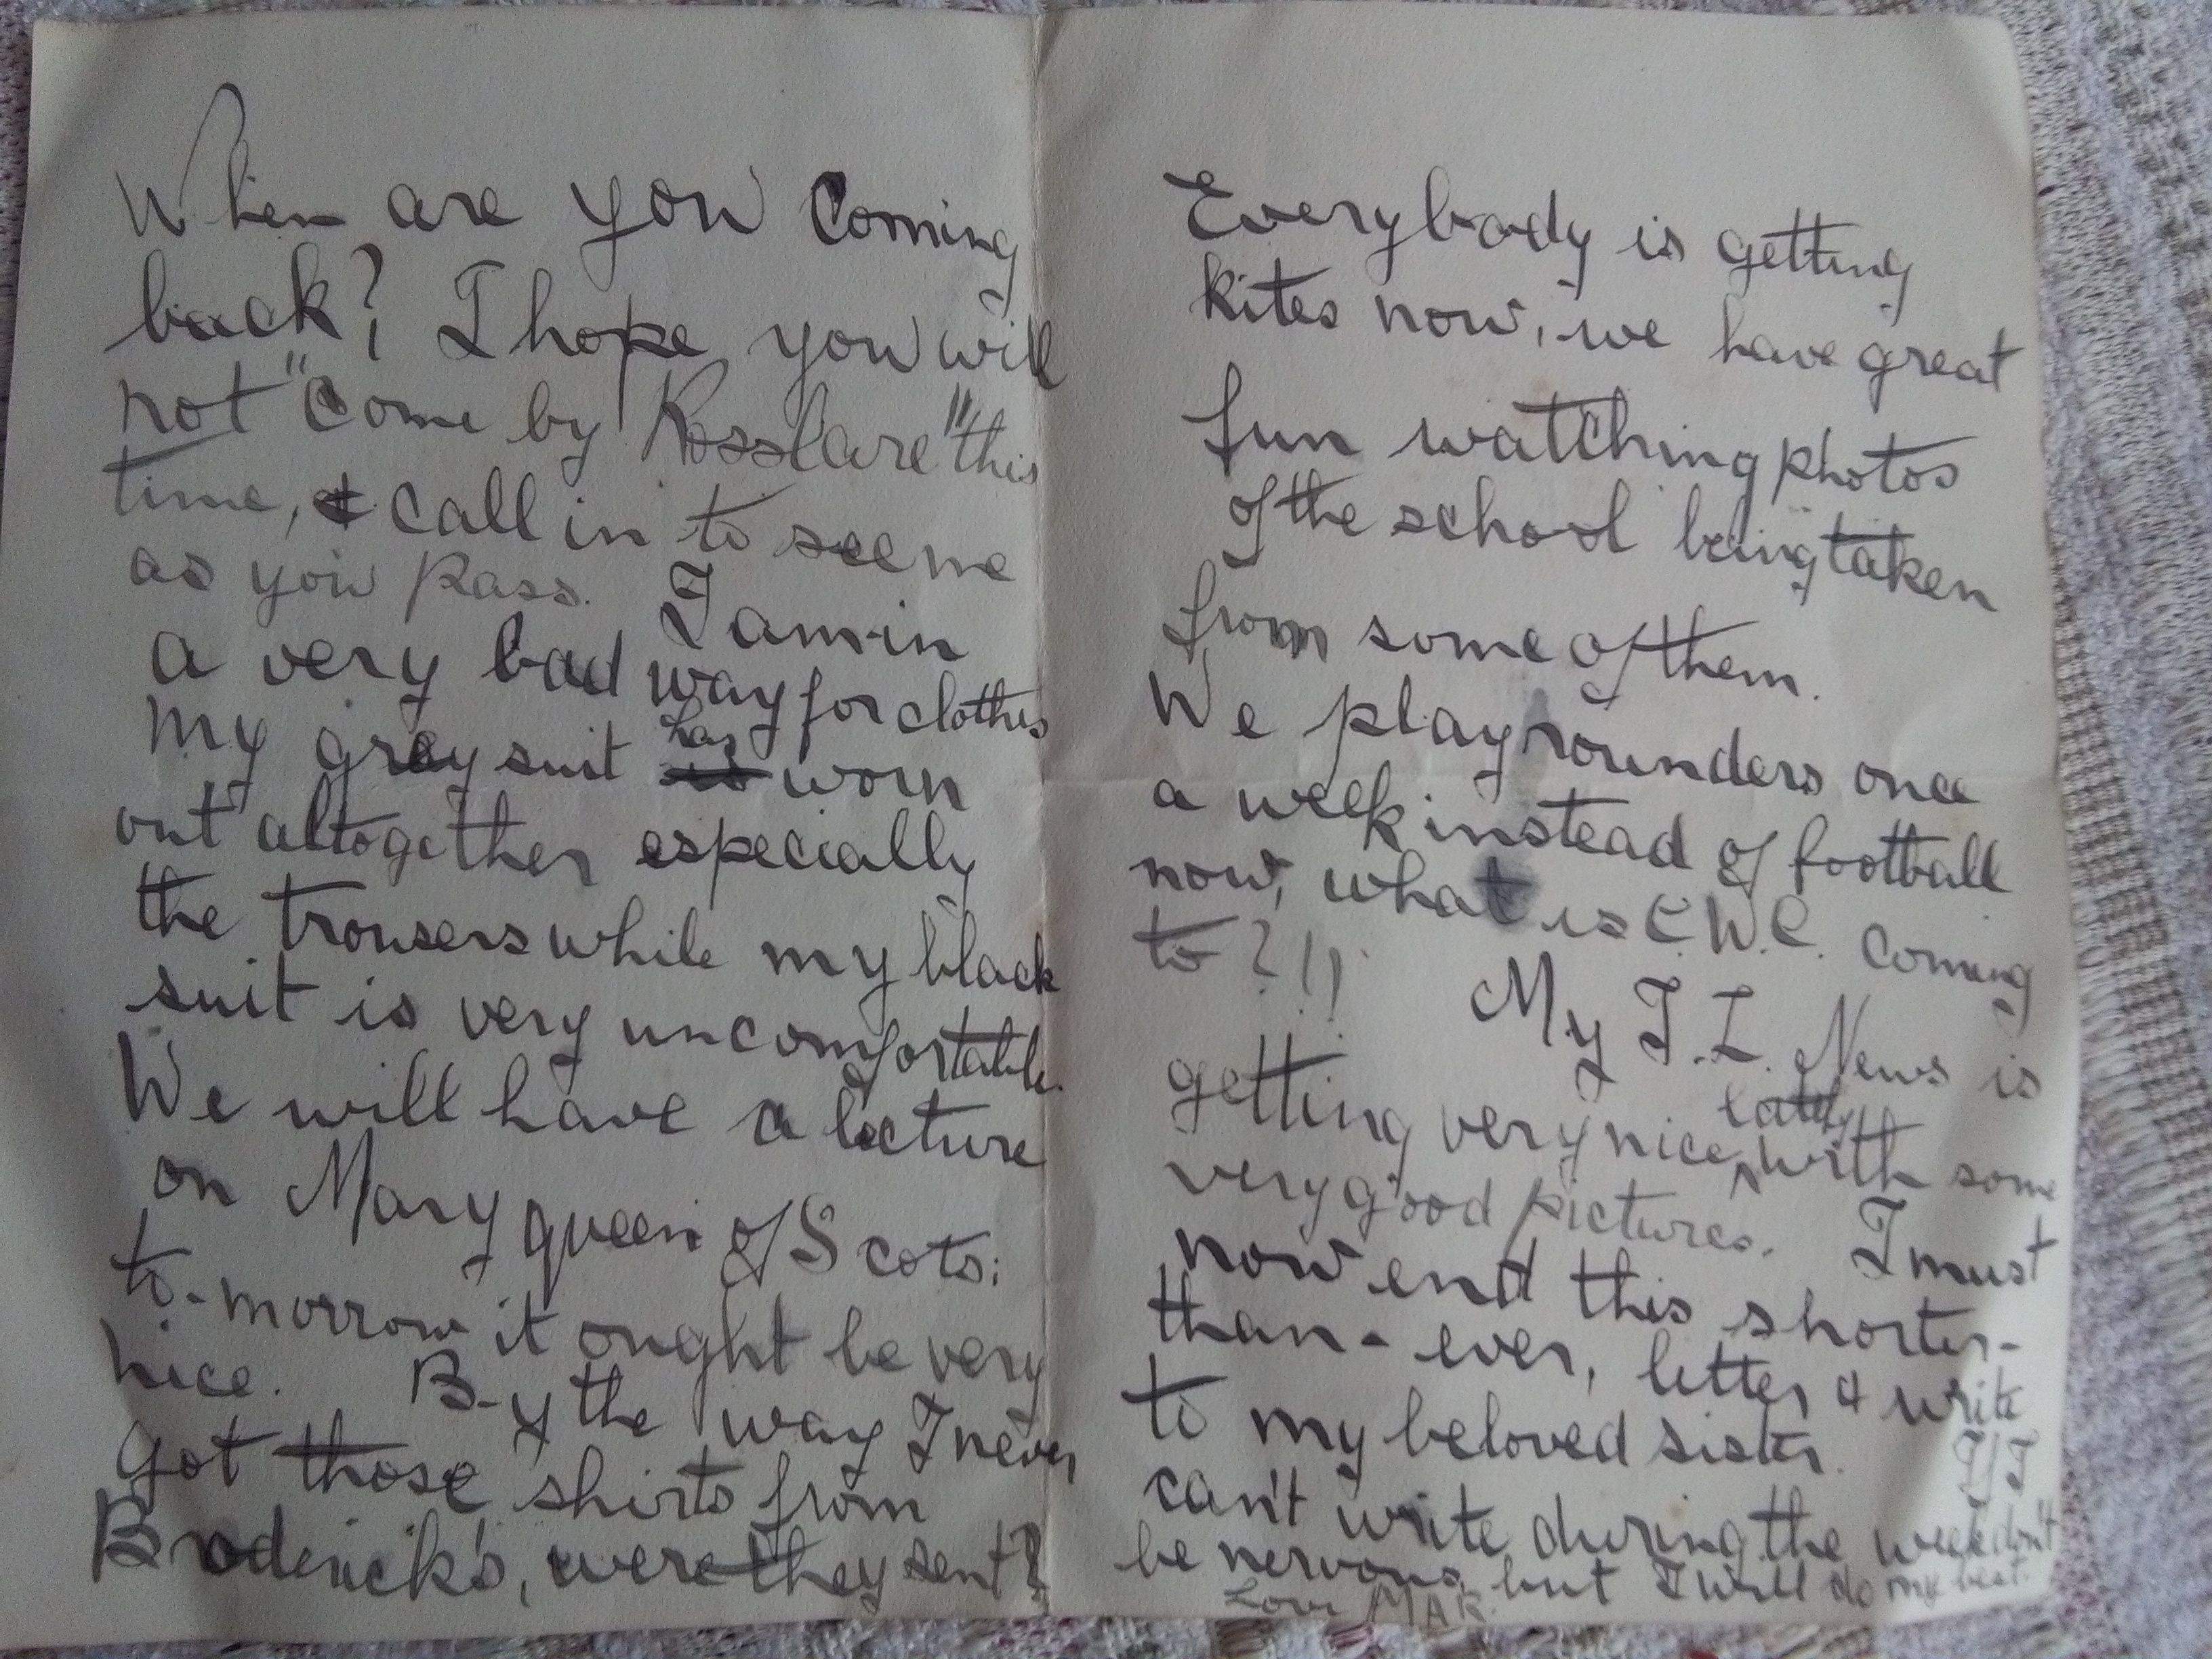 When are you Coming
back? I hope you will
not "Come by Rosslare" this
time, & call in to see me
as you pass. I am in
a very bad way for clothes
my grey suit has worn
out altogether especially
the trousers while my black
suit is very uncomfortable.
We will have a lecture
on Mary queen of Scots:
to-morrow it ought be very
nice. By the way I never
got those shirts from
Broderick's, were they sent?
Everybody is getting
kites now, we have great
fun watching photos
of the school being taken
from some of them.
We play rounders once
a week instead of football
now, what is C.W.C. coming
to?!!
My I.L. News is
getting very nice, lately with some
very good pictures. I must
now end this shorter-
than-ever, letter & write
to my beloved sister. If I
can't write during the week don't
be nervous, but I will do my best.
Love MAK.